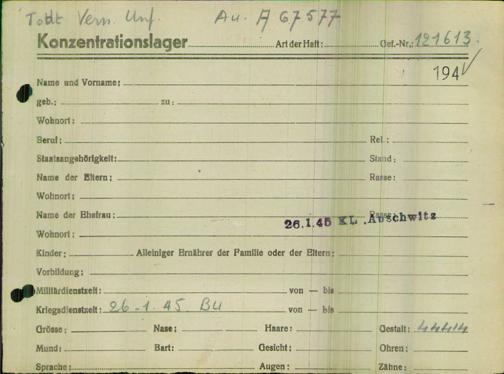 Todt Vern. Unf. Au. A 67577
Konzentrationslager Art der Haft: Gef.-Nr.: 121613.
194
Name und Vorname:
geb.: zu:
Wohnort:
Beruf: Rel.:
Staatsangehörigkeit: Stand:
Name der Eltern: Rasse:
Wohnort:
Name der Ehefrau: Rasse:
26.1.45 KL. Auschwitz
Wohnort:
Kinder: Alleiniger Ernährer der Familie oder der Eltern:
Vorbildung:
Militärdienstzeit: von — bis
Kriegsdienstzeit: 26.1.45. BU von — bis
Grösse: Nase: Haare: Gestalt:
Mund: Bart: Gesicht: Ohren:
Sprache: Augen: Zähne: